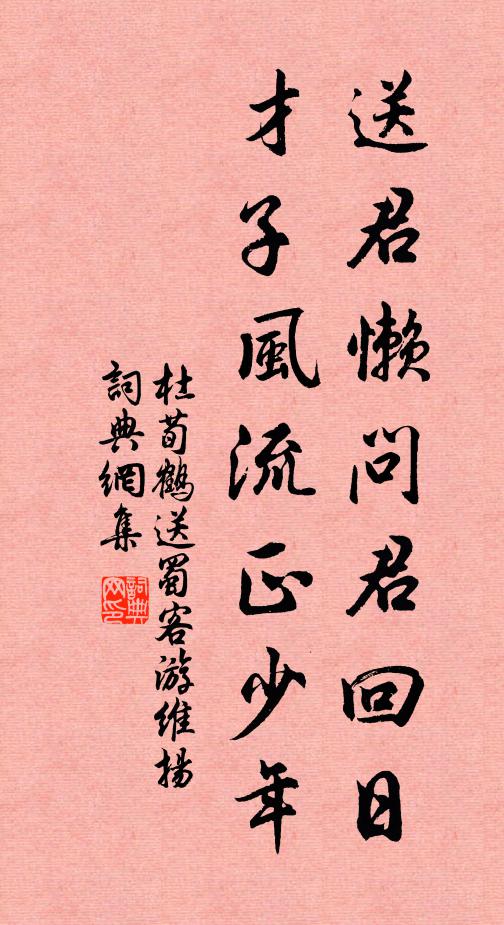 送君懶問君回日
才子風流正少年
杜荀鶴送蜀客游維揚
詞典網集
詞典网印